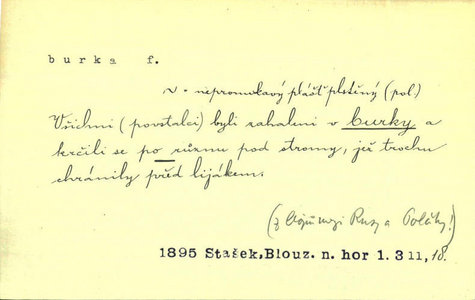 burka f.
v. nepromokavý plášť plstěný (pol)
Všichni (povstalci) byli zahaleni v burky a
krčili se po různu pod stromy, jež trochu
chránily před lijákem.
(z bojů mezi Rusy a Poláky!)
1895 Stašek, Blouz. n. hor 1. 311, 18.